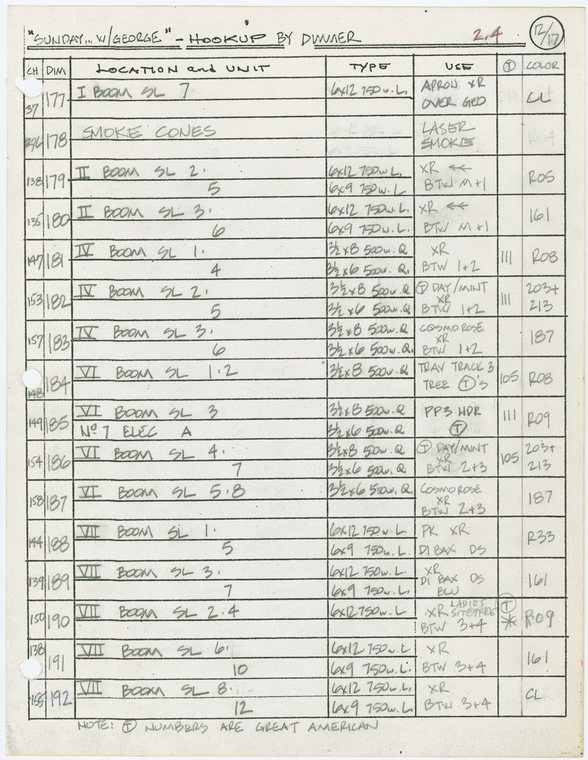 "SUNDAY... W/GEORGE" - HOOKUP BY DIMMER 2.4 12/17
CH DIM LOCATION and UNIT TYPE USE Ⓣ COLOR
37 177 I BOOM SL 7 6x12 750 w. L. APRON XR CL
OVER GEO
178 SMOKE CONES LASER
SMOKE
138 179 II BOOM SL 2. 6x12 750 w. L. XR ←← R05
5 6x9 750 w. L. BTW M+1
135 180 II BOOM SL 3. 6x12 750 w. L. XR ←← 161
6 6x9 750 w. L. BTW M+1
147 181 IV BOOM SL 1. 3½x8 500w. Q XR 111 R08
4 3½x6 500w. Q. BTW 1+2
153 182 IV BOOM SL 2. 3½x8 500w. Q Ⓣ DAY/MINT 111 203+
XR
5 3½x6 500w. Q BTW 1+2 213
157 183 IV BOOM SL 3. 3½x8 500w. Q COSMO ROSE 187
XR
6 3½x6 500w. Q. BTW 1+2
148 184 VI BOOM SL 1.2 3½x8 500w. Q TRAV TRACK 3 105 R08
TREE Ⓣ'S
149 185 VI BOOM SL 3 3½x8 500w. Q PP3 HDR 111 R09
Nº 7 ELEC A 3½x6 500w. Q Ⓣ
154 186 VI BOOM SL 4. 3½x8 500w. Q Ⓣ DAY/MINT 105 203+
XR
7 3½x6 500w. Q BTW 2+3 213
158 187 VI BOOM SL 5.8 3½x6 500w. Q. COSMO ROSE 187
XR
BTW 2+3
144 188 VII BOOM SL 1. 6x12 750 w. L PK XR R33
5 6x9 750 w. L. DI BAX DS
139 189 VII BOOM SL 3. 6x12 750 w. L. XR 161
DI BAX DS
7 6x9 750 w. L. BLU
150 190 VII BOOM SL 2.4 6x12 750 w. L. XR LADIES Ⓣ R09
BTW 3+4 *
138 191 VII BOOM SL 6. 6x12 750 w. L XR 161
10 6x9 750 w. L. BTW 3+4
155 192 VII BOOM SL 8. 6x12 750 w. L. XR CL
12 6x9 750 w. L. BTW 3+4
NOTE: Ⓣ NUMBERS ARE GREAT AMERICAN